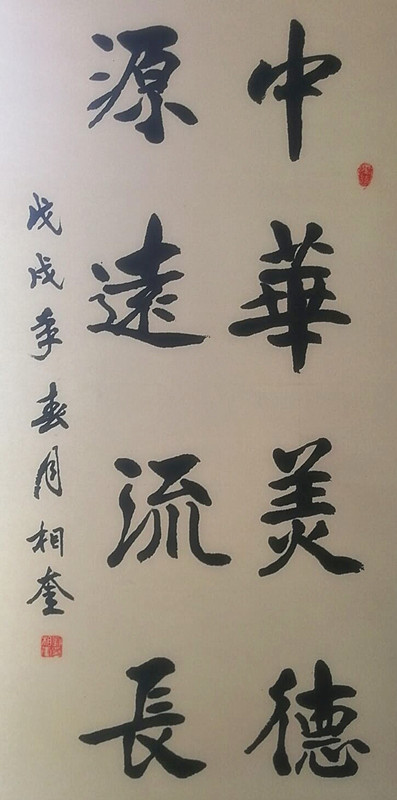 中華美德
源遠流長
戊戌年春月相奎